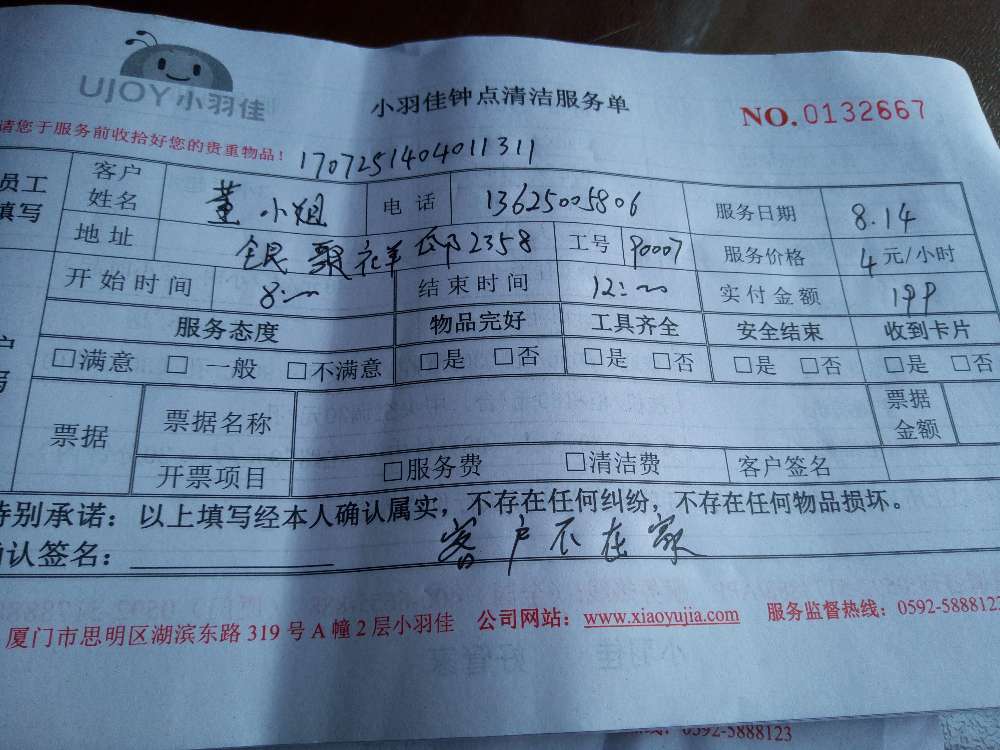 UJOY小羽佳
小羽佳钟点清洁服务单
NO.0132667
请您于服务前收拾好您的贵重物品！
1707251404011311
员工填写 客户姓名 董小姐 电话 13625005806 服务日期 8.14
地址 银聚祥邸2358 工号 90007 服务价格 4元/小时
开始时间 8:00 结束时间 12:00 实付金额 199
服务态度 物品完好 工具齐全 安全结束 收到卡片
□满意 □一般 □不满意 □是 □否 □是 □否 □是 □否 □是 □否
票据 票据名称 票据金额
开票项目 □服务费 □清洁费 客户签名
特别承诺：以上填写经本人确认属实，不存在任何纠纷，不存在任何物品损坏。
确认签名： 客户不在家
厦门市思明区湖滨东路319号A幢2层小羽佳 公司网站：www.xiaoyujia.com 服务监督热线：0592-5888123
0592-5888123